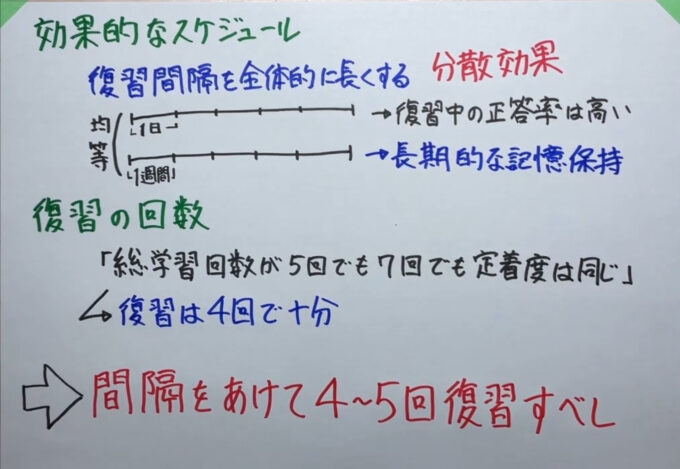 効果的なスケジュール
復習間隔を全体的に長くする 分散効果
均等
1日 →復習中の正答率は高い
1週間 →長期的な記憶保持
復習の回数
「総学習回数が5回でも7回でも定着度は同じ」
↳復習は4回で十分
⇨間隔をあけて4~5回復習すべし